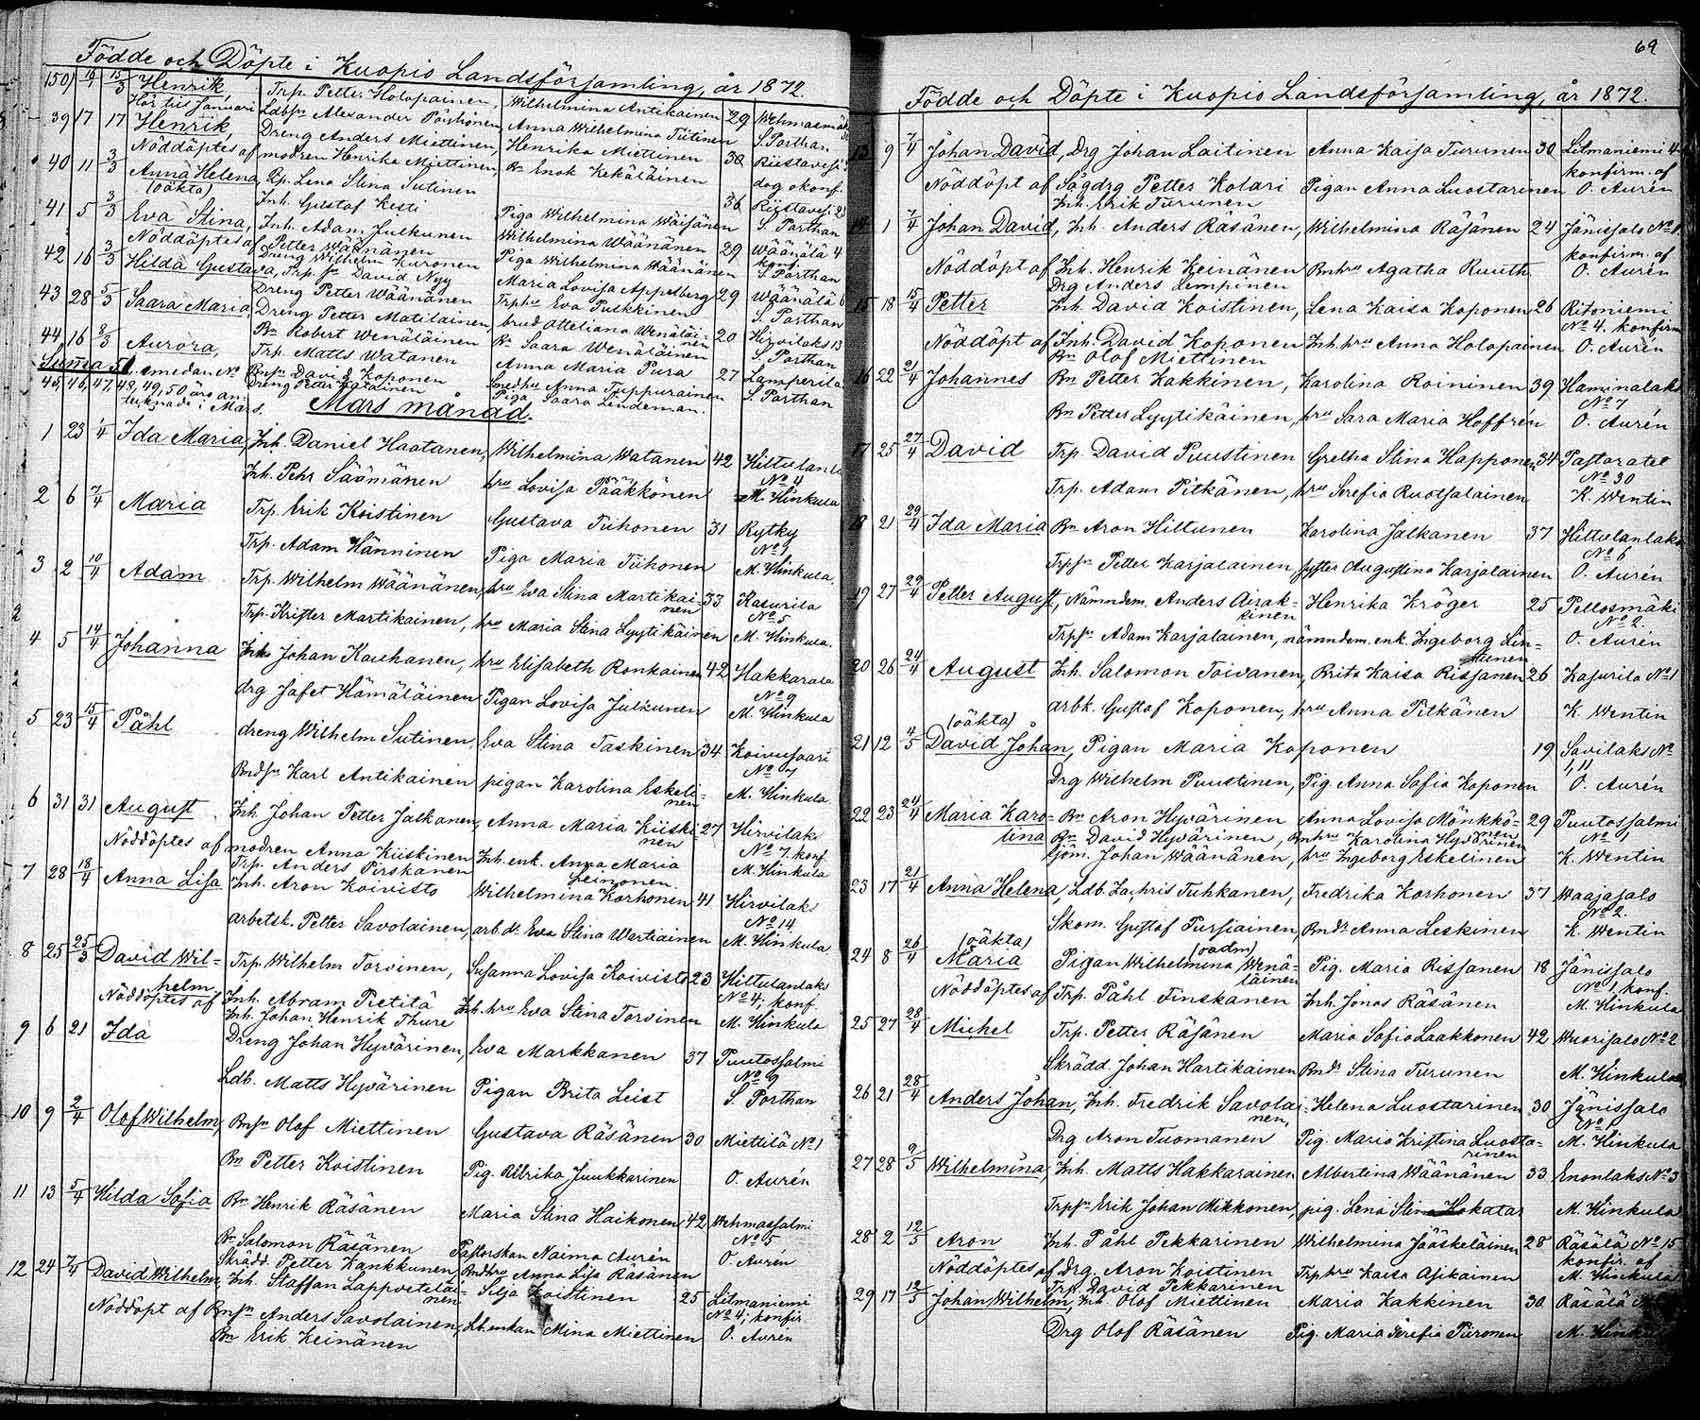 Födde och Döpte i Kuopio Landsförsamling, år 1872.
150 Henrik, Trp. Petter Holopainen, Wilhelmina Antikainen 29 Wehmasmäki
Hör till Januari Ldbsr Alexander Anna Wilhelmina Tiitinen S. Porthan
39 17 17 Henrik, Dreng Anders Miettinen, Henrika Miettinen 38 Riistavesi
Nöddöptes af modren Henrika Miettinen, Bn Enok Kekäläinen dog okonf.
40 11 3/3 Anna Helena Pig. Lena Stina Sutinen 36 Riistavesi
(oäkta) Inh. Gustaf Kesti Piga Wilhelmina Wäisänen S. Porthan
41 5 3/3 Eva Stina, Inh. Adam Julkunen Wilhelmina Wäänänen 29 Wäänälä 4
Nöddöptes af Petter Wäänänen konf.
Dreng Wilhelm Kuronen Piga Wilhelmina Wäänänen S. Porthan
42 16 3/3 Hilda Gustava, Trp. sn David Nyy Maria Lovisa Appelberg 29 Wäänälä 6
Dreng Petter Wäänänen Trphu Eva Pulkkinen S. Porthan
43 28 5/3 Saara Maria, Dreng Petter Matilainen, brud Otteliana Wenäläinen 20 Hirvilaks 13
Bn Robert Wenäläinen Bn Saara Wenäläinen S. Porthan
44 16 8/3 Aurora, Trp. Matts Watanen Anna Maria Pura 27 Lamperila
Summa 51. emedan No Bnsn David Koponen Anna Tuppurainen S. Porthan
45, 46, 47, 48, 49, 50 äro an- Dreng Petter Piga Saara Lindeman.
tecknade i Mars.
Mars månad.
1 23 1/4 Ida Maria, Inh. Daniel Haatanen, Wilhelmina Watanen 42 Hiltulanlaks
No 4
Inh. Pehr Säämänen hru Lovisa Pääkkönen M. Hinkula
2 6 7/4 Maria Trp. Erik Koistinen Gustava Tiihonen 31 Rytky
No 9
Trp. Adam Hänninen Piga Maria Tiihonen M. Hinkula.
3 2 10/4 Adam Trp. Wilhelm Wäänänen, hru Eva Stina Martikainen 33 Kasurila
No 5
Trp. Krister Martikainen, hru Maria Stina Lyytikäinen M. Hinkula.
4 5 14/4 Johanna Inh Johan Kauhanen, hru Elisabeth Ronkainen 42 Hakkarala
No 9
drg Jafet Hämäläinen Pigan Lovisa Julkunen M. Hinkula
5 23 15/4 Påhl dreng Wilhelm Sutinen, Eva Stina Taskinen 34 Koivusaari
No 7
Bndsn Karl Antikainen pigan Karolina Eskelinen M. Hinkula
6 31 31 August Inh. Johan Petter Jalkanen, Anna Maria Kiiskinen 27 Hirvilaks
No 7. konf
Nöddöptes af modren Anna Kiiskinen Inh. enk. Anna Maria Leinonen M. Hinkula
Trp. Anders Pirskanen
7 28 18/4 Anna Lisa Inh. Aron Koivisto Wilhelmina Korhonen 41 Hirvilaks
No 14
arbetsk. Petter Savolainen, arb. d. Eva Stina Wartiainen M. Hinkula
8 25 25/3 David Wil-
helm Trp. Wilhelm Torvinen, Susanna Lovisa Koivisto 23 Hiltulanlaks
No 4, konf
Nöddöptes af Inh. Abram Pietilä Inh. hru Eva Stina Torvinen M. Hinkula
Inh. Johan Henrik Thure
9 6 21 Ida Dreng Johan Hyvärinen, Eva Markkanen 37 Puutossalmi
No 9
Ldb. Matts Hyvärinen Pigan Brita Leist S. Porthan
10 9 2/4 Olof Wilhelm, Bnsn Olof Miettinen Gustava Räsänen 30 Miettilä No 1
Bn Petter Koistinen Pig. Ulbrika Juukkarinen O. Aurén
11 13 5/4 Hilda Sofia Bn Henrik Räsänen Maria Stina Haikonen 42 Wehmassalmi
No 5
Bn Salomon Räsänen Pastorskan Naima Aurén O. Aurén
Skrädd. Petter Kankkunen, Bndhru Anna Lisa Räsänen
12 24 7/4 David Wilhelm, Inh. Staffan Lappveteläinen Silja Koistinen 25 Litmaniemi
No 4, konfir
Nöddöpt af Bnsn Anders Savolainen, enkan Mina Miettinen O. Aurén
Bn Erik Keinänen
69
Födde och Döpte i Kuopio Landsförsamling, år 1872.
13 9 7/4 Johan David, Drg Johan Laitinen Anna Kaisa Turunen 30 Litmaniemi 4
konfirm. af
Nöddöpt af Sågdrg Petter Kolari Pigan Anna Luostarinen O. Aurén
Inh. Erik Turunen
14 1 7/4 Johan David, Inh. Anders Räsänen, Wilhelmina Räsänen 24 Jänissalo No 1
konfirm. af
Nöddöpt af Inh. Henrik Keinänen Bnhru Agatha Ruuth O. Aurén
Drg Anders Lempinen
15 18 15/4 Petter Inh. David Koistinen, Lena Kaisa Koponen 26 Ritoniemi
No 4. konfirm
Nöddöpt af Inh. David Koponen Inh. hru Anna Holopainen O. Aurén
Bn Olof Miettinen
16 22 21/4 Johannes Bn Petter Kakkinen, Karolina Roininen 39 Hamunalaks
No 7
Bn Petter Lyytikäinen, hru Sara Maria Hoffrén O. Aurén
17 25 27/4 David Trp. David Puustinen Gretha Stina Happonen 34 Pastoratet
No 30
Trp. Adam Pitkänen, hru Serefia Ruotsalainen K. Wentin
18 21 29/4 Ida Maria Bn Aron Hiltunen Karolina Jalkanen 37 Hiltulanlaks
No 6
Trpsn Petter Karjalainen syster Augustina Karjalainen O. Aurén
19 27 29/4 Petter August, Nämndem. Anders Airak-
sinen Henrika Kröger 25 Pellosmäki
No 2.
Trpsn Adam Karjalainen, nämndem. enk. Ingeborg Lin-
tunen O. Aurén
20 26 24/4 August Inh. Salomon Toivanen, Brita Kaisa Rissanen 26 Kasurila No 1
arbk. Gustof Koponen, hru Anna Pitkänen K. Wentin
(oäkta)
21 12 4/5 David Johan, Pigan Maria Koponen 19 Savilaks No
1, 11
Drg Wilhelm Puustinen, Pig. Anna Sofia Koponen O. Aurén
22 23 24/4 Maria Karo-
lina Bn Aron Hyvärinen Anna Lovisa Mönkkö-
nen 29 Puutossalmi
No 1
Bn David Hyvärinen, Bnhru Karolina Hyvärinen
Johan Wäänänen, hru Ingeborg Eskelinen K. Wentin
23 17 21/4 Anna Helena, Ldb. Zachris Tuhkanen, Fredrika Korhonen 37 Waajasalo
No 2.
Skom. Gustof Tursiainen, Bnds Anna Leskinen K. Wentin
(oäkta)
24 8 26/4 Maria Pigan Wilhelmina Wenä-
läinen Pig. Maria Rissanen 18 Jänissalo
No 1 konf.
Nöddöptes af Trp. Påhl Finskanen Inh. Jonas Räsänen M. Hinkula
25 27 28/4 Michel Trp. Petter Räsänen Maria Sofia Laakkonen 42 Wuorisalo No 2
Skrädd. Johan Hartikainen Bnds Stina Turunen M. Hinkula
26 21 28/4 Anders Johan, Inh. Fredrik Savolai-
nen, Helena Luostarinen 30 Jänissalo
No 1
Drg Aron Tuomanen Pig. Maria Kristina Luosta-
rinen M. Hinkula
27 28 9/5 Wilhelmina, Inh. Matts Hakkarainen Albertina Wäänänen 33 Enonlaks No 3
Trpsn Erik Johan Mikkonen, pig. Lena Stina Hokatar M. Hinkula
28 2 12/5 Aron Inh. Påhl Pekkarinen Wilhelmina Jääskeläinen 28 Räsälä No 15
konfir. af
Nöddöptes af drg. Aron Koistinen Trphru Kaisa Asikainen M. Hinkula
Trp. David Pekkarinen
29 17 12/5 Johan Wilhelm, Inh Olof Miettinen Maria Kakkinen 30 Räsälä
Drg Olof Räsänen Pig. Maria Serefia Piironen M. Hinkula